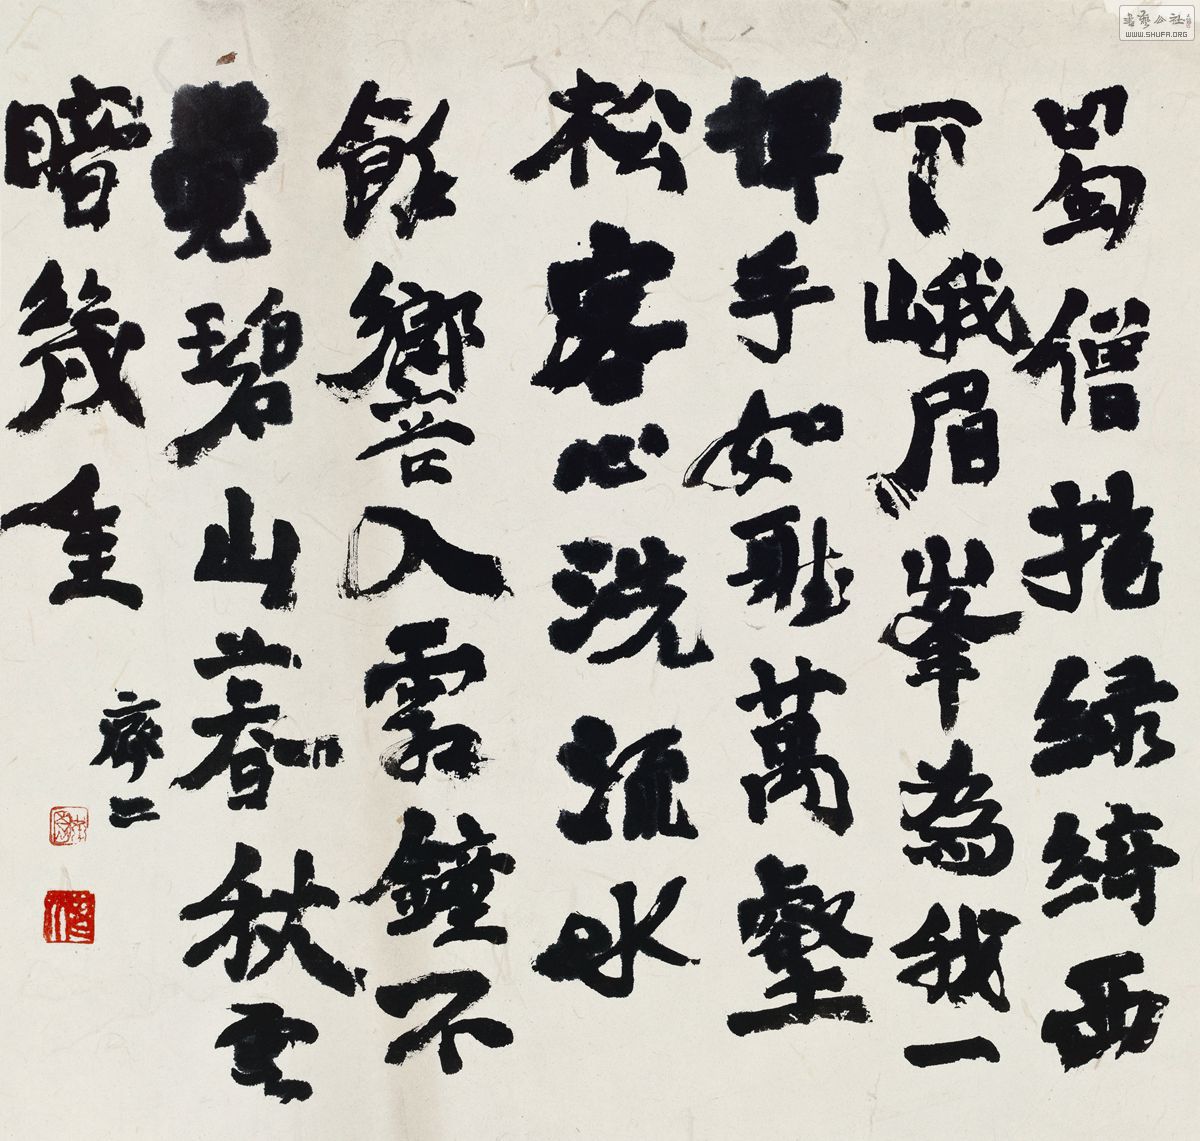 蜀僧抱綠綺西
下峨眉峯為我一
揮手如聽萬壑
松客心洗流水
餘響入霜鐘不
覺碧山暮秋雲
暗幾重
書藝公社
WWW.SHUFA.ORG